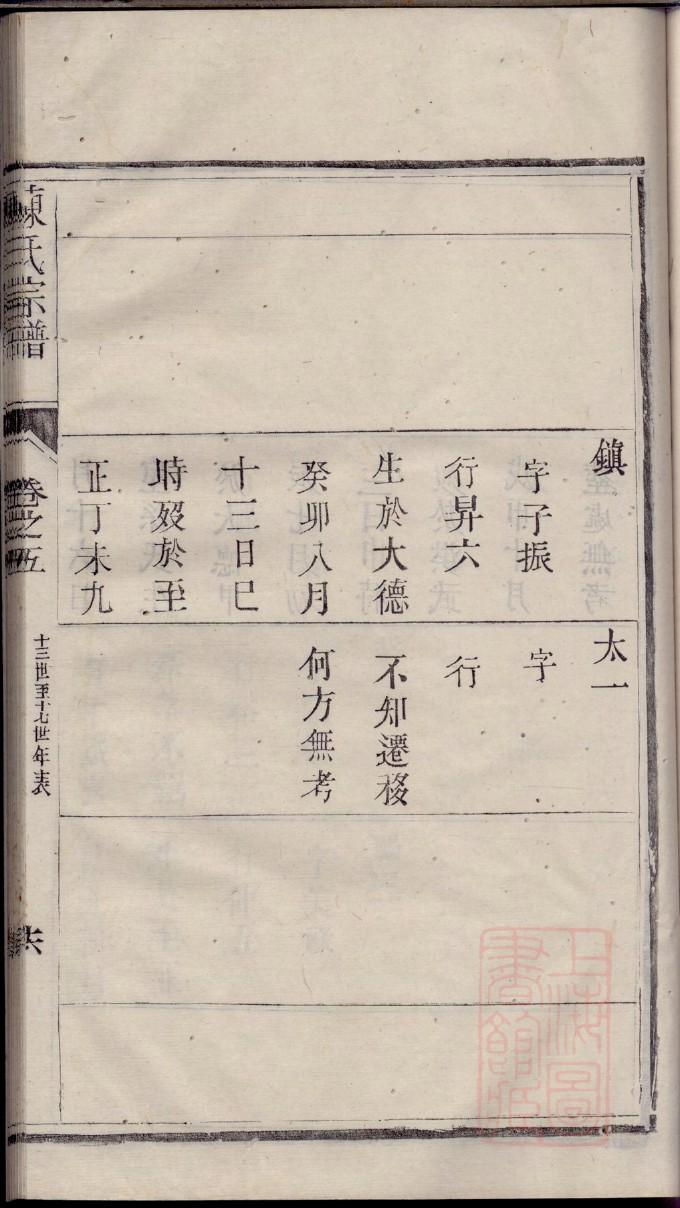 鎮
字子振
行昇六
生於大德
癸卯八月
十三日巳
時歿於至
正丁未九
太一
字
行
不知遷移
何方無考
陳氏宗譜
卷之五
十三世至十七世年表
六
上海圖
書館藏